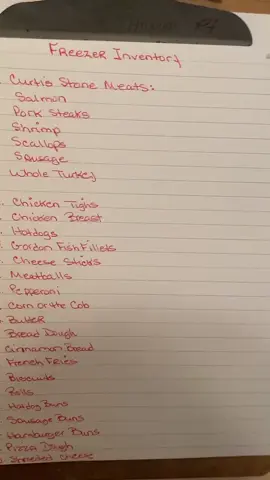 Freezer Inventory
Curtis Stone Meats:
Salmon
Pork Steaks
Shrimp
Scallops
Sausage
Whole Turkey
Chicken Tighs
Chicken Breast
Hotdogs
Gordon Fish Fillets
Cheese Sticks
Meatballs
Pepperoni
Corn on the Cob
Butter
Bread Dough
Cinnamon Bread
French Fries
Biscuits
Rolls
Hotdog Buns
Sausage Buns
Hamburger Buns
Pizza Dough
Shredded Cheese